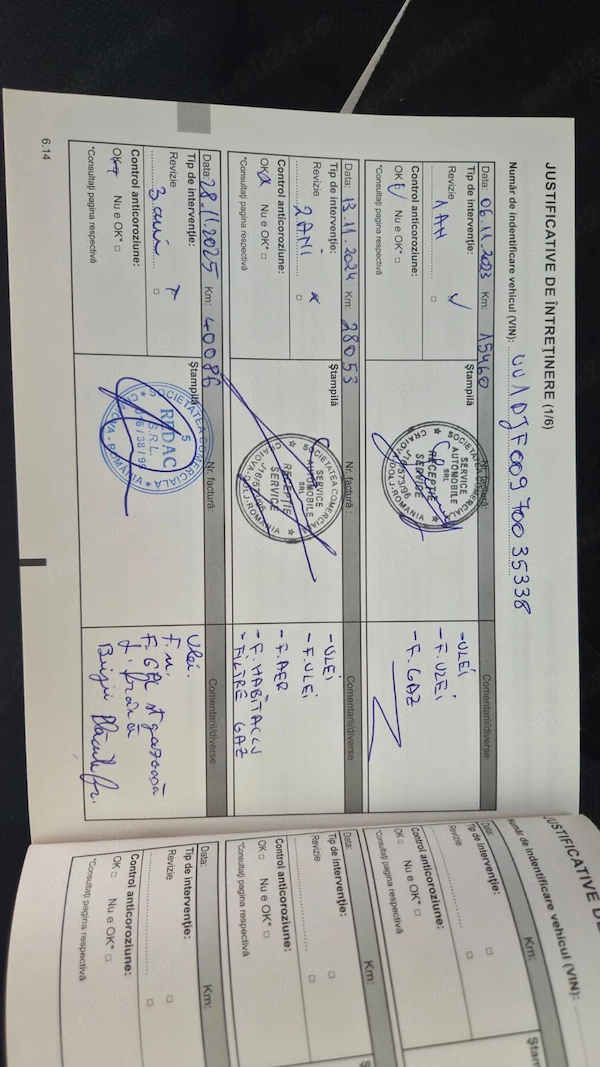 JUSTIFICATIVE DE ÎNTREȚINERE (1/6)
Număr de indentificare vehicul (VIN): UU1DJF00970035338
Data: 06.11.2023 Km: 15460
Tip de intervenție:
Revizie
1 AN
Control anticoroziune:
OK Nu e OK*
*Consultați pagina respectivă
Ștampilă
SOCIETATEA COMERCIALA
SERVICE
AUTOMOBILE
SRL
RECEPTIE
SERVICE
CRAIOVA-DOLJ-ROMANIA
Comentarii/diverse
-ULEI
-F.ULEI
-F. GAZ
Data: 13.11.2024 Km: 28053
Tip de intervenție:
Revizie
2 ANI
Control anticoroziune:
OK Nu e OK*
*Consultați pagina respectivă
Ștampilă
Nr. factură:
SOCIETATEA COMERCIALA
SERVICE
AUTOMOBILE
SRL
RECEPTIE
SERVICE
CRAIOVA-DOLJ-ROMANIA
Comentarii/diverse
-ULEI
-F.ULEI
-F.AER
-F.HABITACLU
-FILTRE GAZ
Data: 28.11.2025 Km: 40086
Tip de intervenție:
Revizie
3 ani
Control anticoroziune:
OK Nu e OK*
*Consultați pagina respectivă
Ștampilă
Nr. factură:
SOCIETATEA COMERCIALA
5
REDAC
S.R.L.
ROMANIA
Comentarii/diverse
Ulei.
F.u.
F. GPL
frână
Bujii
6.14
JUSTIFICATIVE DE
Număr de indentificare vehicul (VIN):
Data: Km:
Tip de intervenție:
Revizie
Control anticoroziune:
OK Nu e OK*
*Consultați pagina respectivă
Data: Km:
Tip de intervenție:
Revizie
Control anticoroziune:
OK Nu e OK*
*Consultați pagina respectivă
Data: Km:
Tip de intervenție:
Revizie
Control anticoroziune:
OK Nu e OK*
*Consultați pagina respectivă
publi24.ro